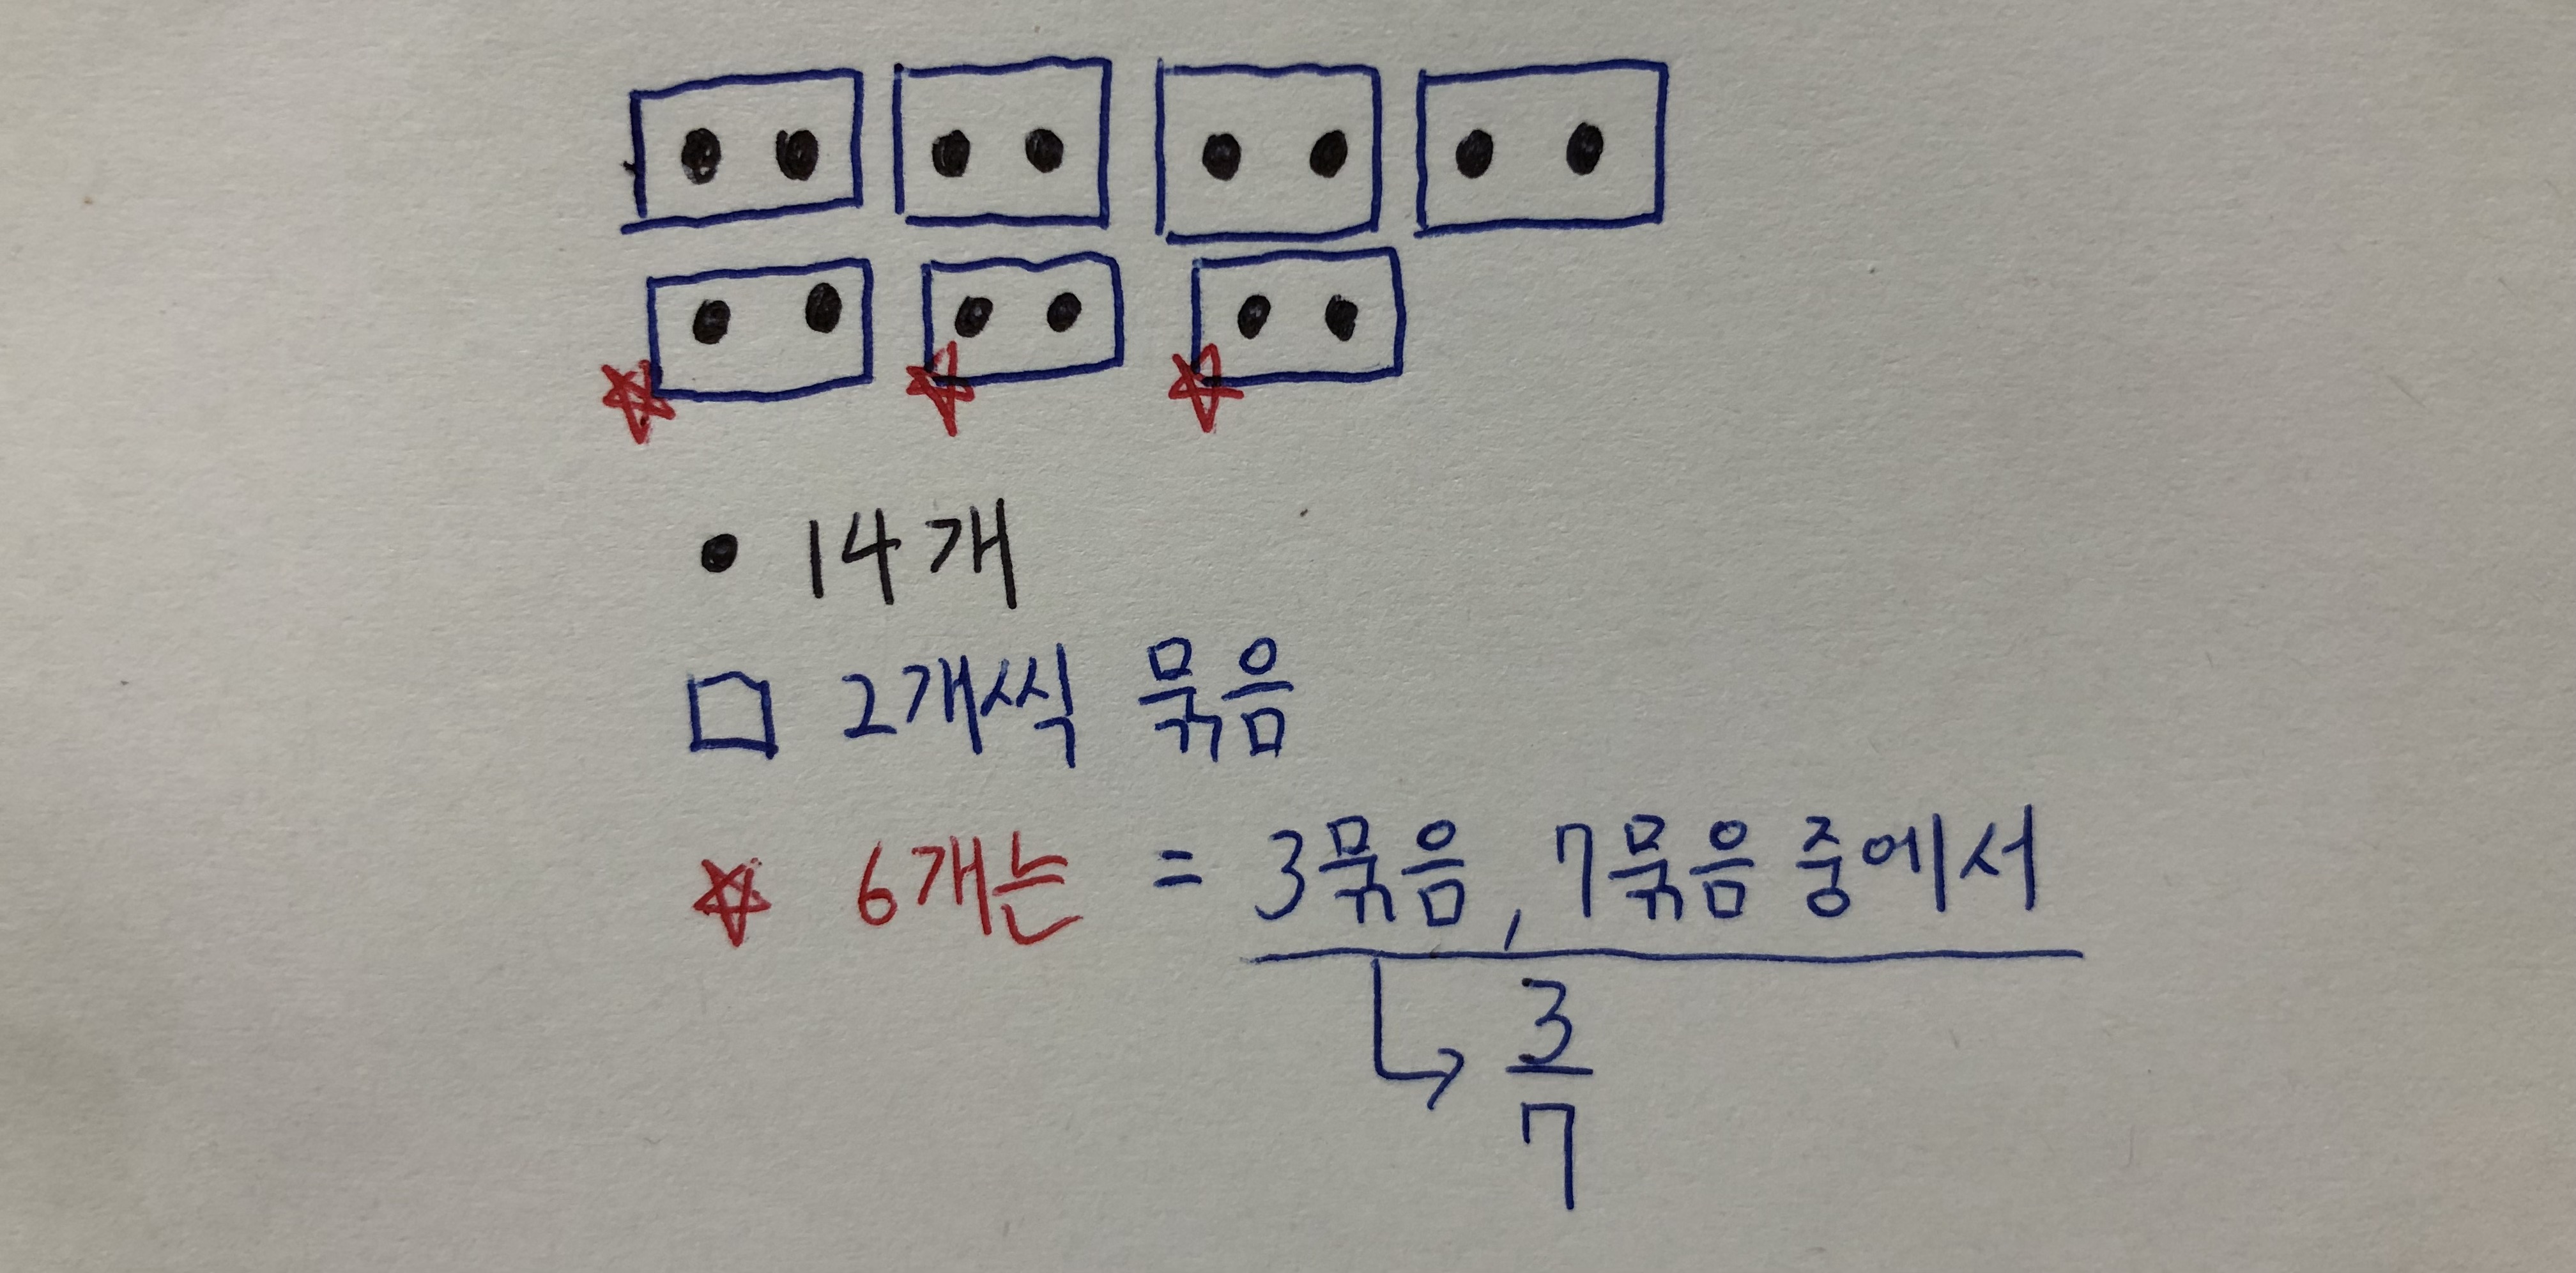 ● 14개
□ 2개씩 묶음
☆ 6개는 = 3묶음, 7묶음 중에서
↳ 3/7